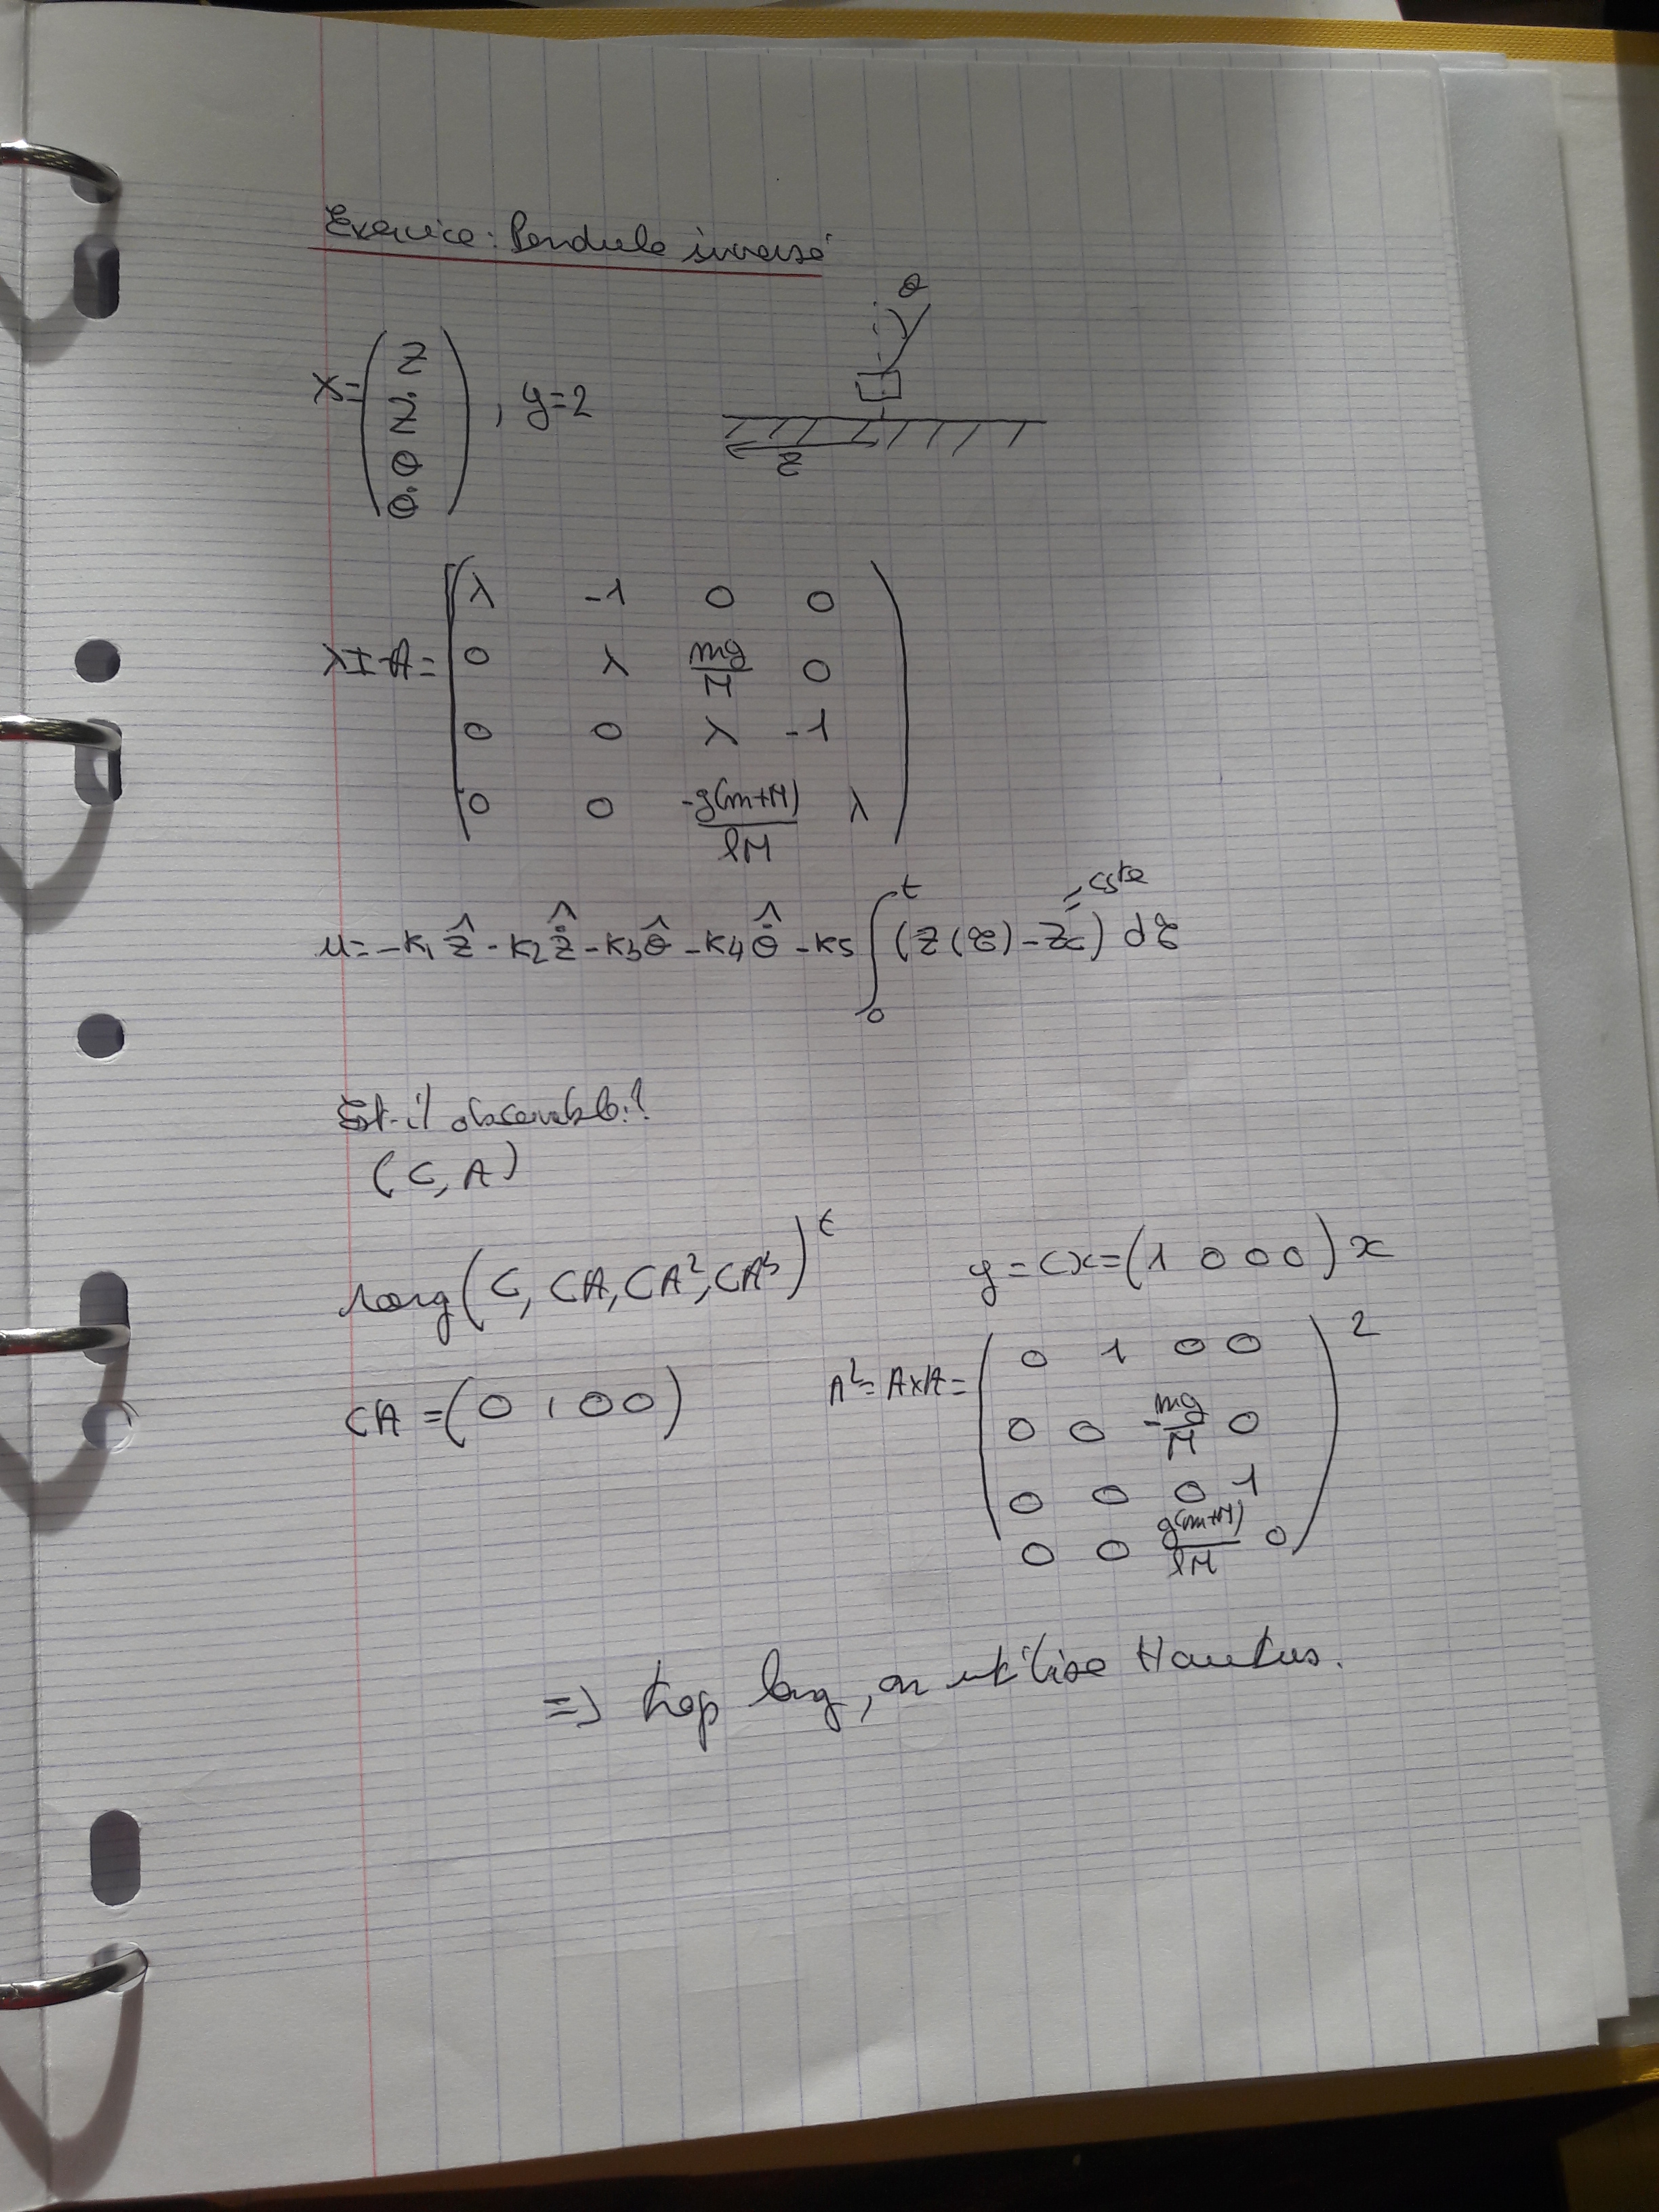 Exercice : Pendule inversé
θ
X = ( z ; ż ; θ ; θ̇ ) , y=z
z
λI-A = ( λ -1 0 0
0 λ mg/M 0
0 0 λ -1
0 0 -g(m+M)/lM λ )
= cste
u = -K1 ẑ - K2 ż̂ - K3 θ̂ - K4 θ̇̂ - K5 ∫₀ᵗ (z(τ) - zc) dτ
Est-il observable ?
(C, A)
rang (C, CA, CA², CA³)ᵗ
y = Cx = (1 0 0 0) x
CA = (0 1 0 0)
A² = A×A = ( 0 1 0 0
0 0 -mg/M 0
0 0 0 1
0 0 g(m+M)/lM 0 )²
=> trop long, on utilise Hautus.